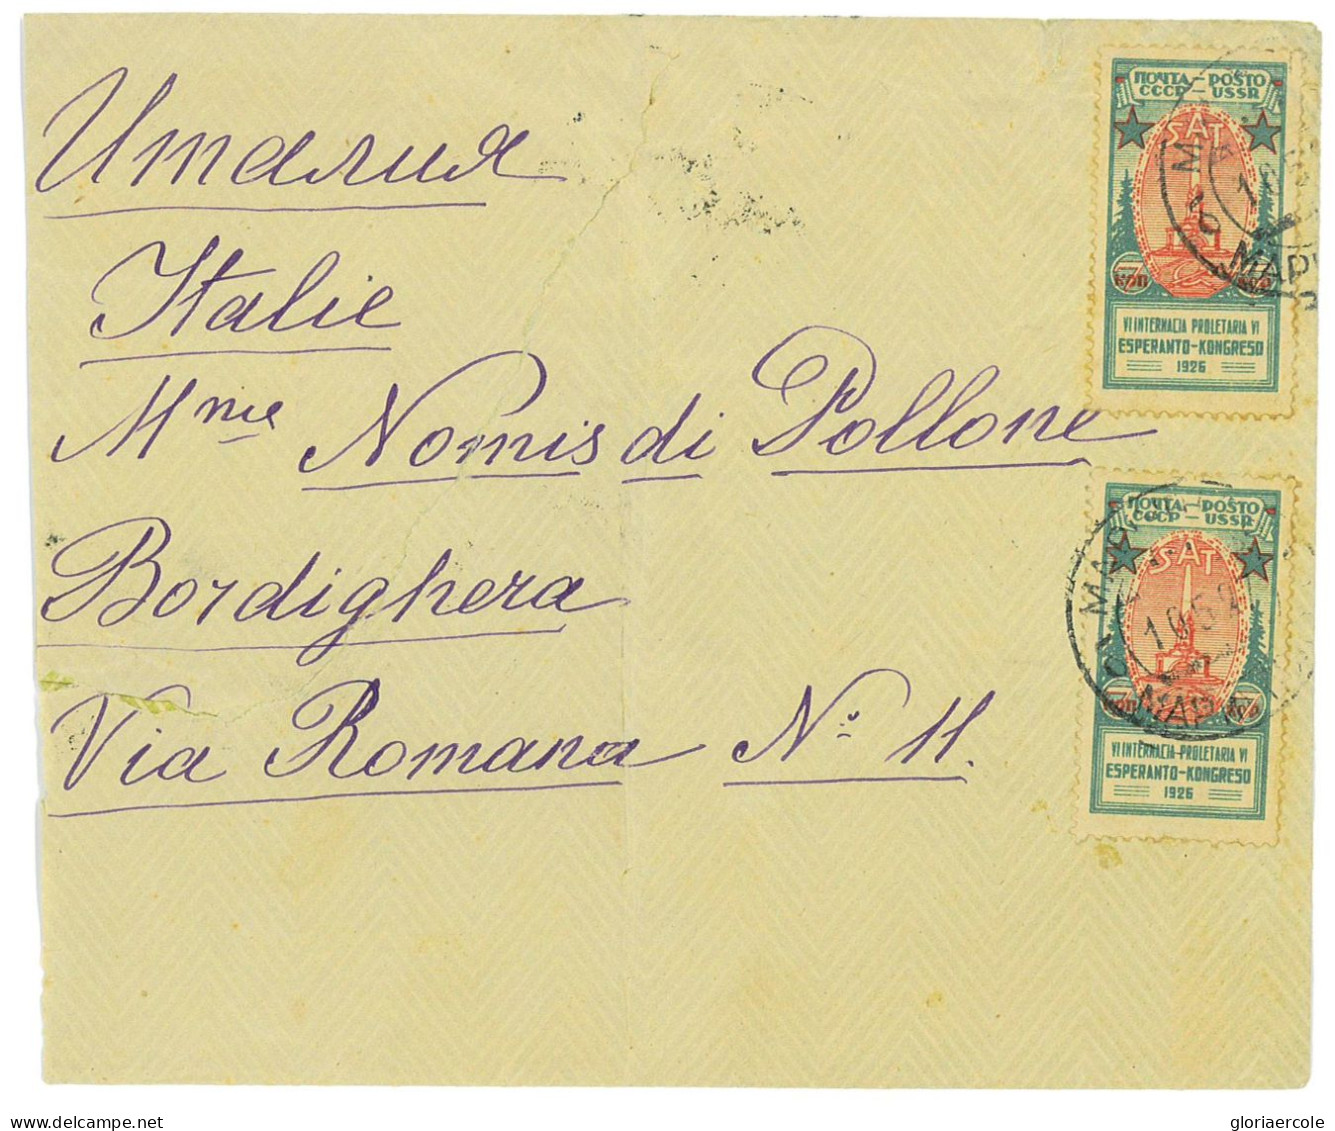 Италия
Italie
Mme Nomis di Pollone
Bordighera
Via Romana № 11.
ПОЧТА – POSTO
СССР – USSR
SAT
7 7
КОП КОП
VI INTERNACIA PROLETARIA VI
ESPERANTO-KONGRESO
1926
ПОЧТА – POSTO
СССР – USSR
SAT
7 7
КОП КОП
VI INTERNACIA-PROLETARIA VI
ESPERANTO-KONGRESO
1926
gloriaercole